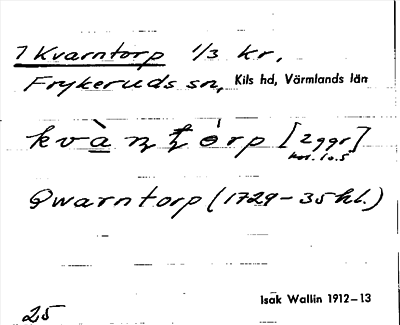 7 Kvarntorp 1/3 kr.
Frykeruds sn, Kils hd, Värmlands län
kvàṇṭórp [2 ggr]
Qwarntorp (1729–35 hl.)
Isak Wallin 1912–13
25